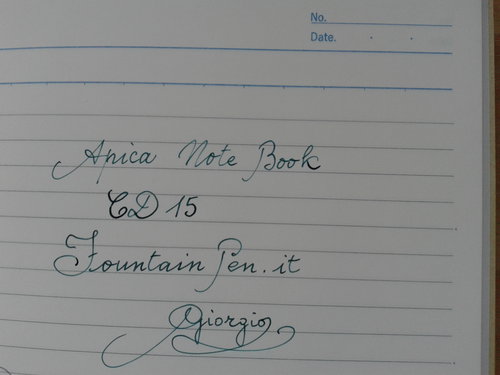 No.
Date.
Apica Note Book
CD 15
Fountain Pen.it
Giorgio